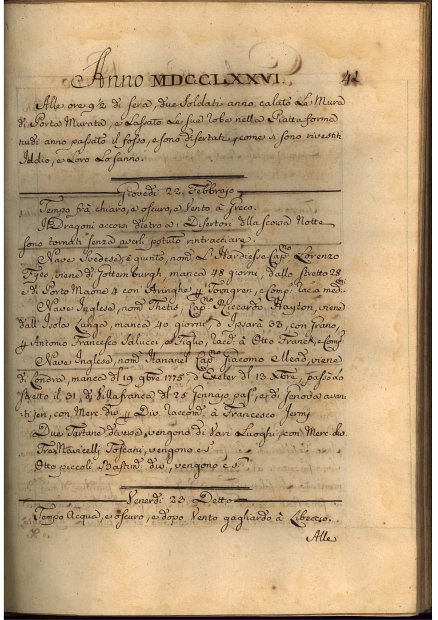 Anno MDCCLXXVI. 42
Alle ore 9½ di sera, due Soldati anno calato le Mura
di Porta Murata, e lassato le sue robe nella Piattaforma
tudi anno passato il fosso, e sono disertati, come si sono rivestiti
Iddio, e Loro lo sanno.
Giovedì 22. Febbrajo
Tempo frà chiaro, e oscuro, e Vento à Greco.
I Dragoni accorsi dietro a i Disertori della scorsa Notte
sono tornati senza averli potuto rintracciare.
Nave Svedese, è giunto, nom. L'Hardiesse Cap.no Lorenzo
viene di Gottemburgh, manca 48 giorni, dallo stretto 28
e di Porto Maone 4 con Aringhe p. Tovngren, e Comp.
Nave Inglese, nom. Thetis, Cap.no Riccardo Hayton, viene
dall'Isola Lunga, manca 40 giorni, d' 33, con Grano,
p. Antonio Francesco Salucci, e Figlio, racc. à Otto Franck, e Comp.
Nave Inglese, nom. Hananel Cap.no Giacomo Mead, viene
di Londra, manca dal 19 9bre 1775, d'Exeter dal 13 Xbre, passò lo
stretto il 31, di Villafranca dal 25 Gennajo pas., e di Genova avan
ti jeri, con Merc. div. p. Div. raccom. à Francesco Jermj
Due Tartane diverse, vengono di Varj Luoghi, con Merc. div.
Tre Navicelli Toscani, vengono e s.
Otto piccoli Bastim. div., vengono e s.
Venerdì 23 Detto
Tempo Acqua, e oscuro, e dopo Vento gagliardo à Libeccio.
Alle